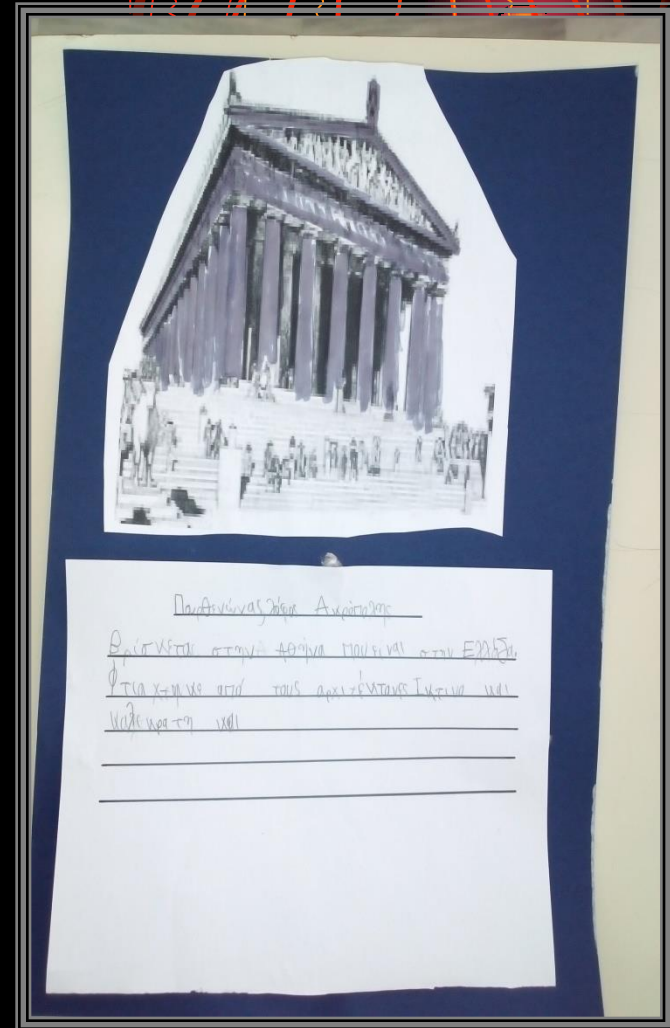 Παρθενώνας λόφος Ακρόπολης
Βρίσκεται στην Αθήνα που είναι στην Ελλάδα.
Φτιαχτηκε από τους αρχιτέκτονες Ικτινο και
καλεκρατη και